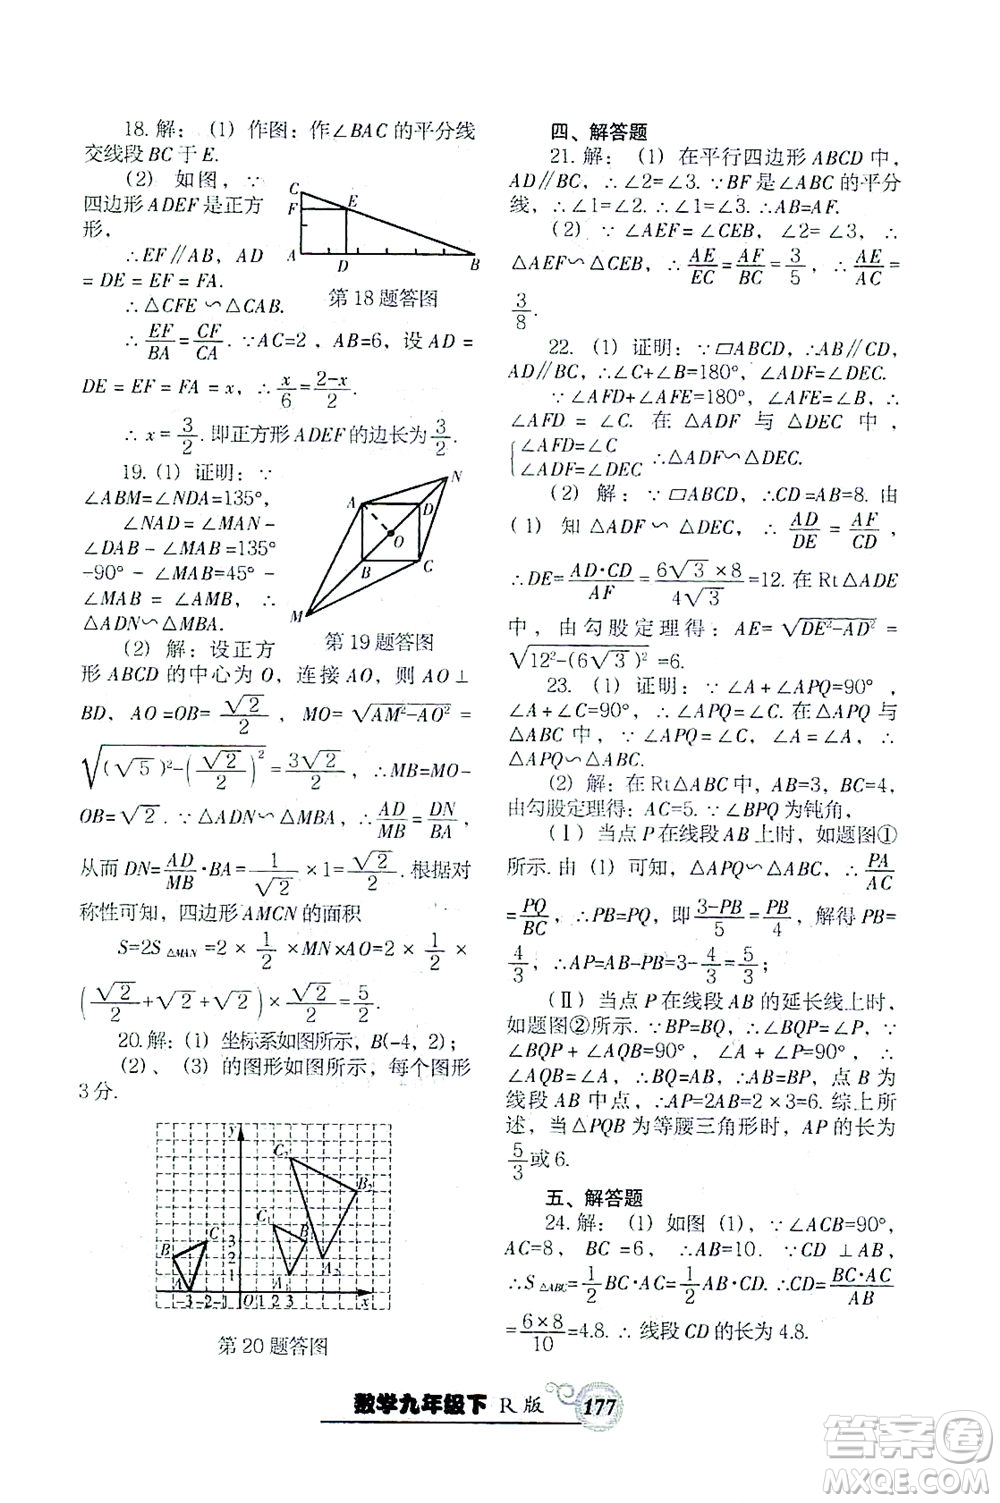 18. 解：（1）作图：作∠BAC 的平分线
交线段 BC 于 E.
（2）如图，∵
四边形 ADEF 是正方
形，
∴EF∥AB，AD
= DE = EF = FA.
∴△CFE ∽△CAB.
∴ EF/BA = CF/CA. ∵AC=2，AB=6，设 AD =
DE = EF = FA = x，∴ x/6 = (2-x)/2.
∴ x = 3/2. 即正方形 ADEF 的边长为 3/2.
C
F
E
A
D
B
第 18 题答图
19.（1）证明：∵
∠ABM=∠NDA=135°，
∠NAD = ∠MAN -
∠DAB - ∠MAB =135°
-90° - ∠MAB=45° -
∠MAB = ∠AMB，∴
△ADN∽△MBA.
N
A
D
O
B
C
M
第 19 题答图
（2）解：设正方
形 ABCD 的中心为 O，连接 AO，则 AO ⊥
BD，AO =OB= √2/2，MO= √(AM²-AO²) =
√((√5)²-(√2/2)²) = 3√2/2，∴MB=MO-
OB=√2. ∵△ADN∽△MBA，∴ AD/MB = DN/BA，
从而 DN= AD/MB ·BA= 1/√2 × 1= √2/2. 根据对
称性可知，四边形 AMCN 的面积
S=2S △MAN =2 × 1/2 ×MN×AO=2 × 1/2 ×
(√2/2 +√2 +√2/2) × √2/2 = 5/2.
20. 解：（1）坐标系如图所示，B(-4，2)；
（2）、（3）的图形如图所示，每个图形
3 分.
y
C₂
B₂
C₁
B₁
B
C
3
2
1
A
A₁
A₂
-3 -2 -1 O 1 2 3 x
第 20 题答图
四、解答题
21. 解：（1）在平行四边形 ABCD 中，
AD∥BC，∴∠2=∠3. ∵BF 是∠ABC 的平分
线，∴∠1=∠2. ∴∠1=∠3. ∴AB=AF.
（2）∵∠AEF=∠CEB，∠2=∠3，∴
△AEF∽△CEB，∴ AE/EC = AF/BC = 3/5，∴ AE/AC =
3/8.
22.（1）证明：∵▱ABCD，∴AB∥CD，
AD∥BC，∴∠C+∠B=180°，∠ADF=∠DEC.
∵∠AFD+∠AFE=180°，∠AFE=∠B，∴
∠AFD = ∠C. 在 △ADF 与 △DEC 中，
{∠AFD=∠C
∠ADF=∠DEC ∴△ADF∽△DEC.
（2）解：∵▱ABCD，∴CD=AB=8. 由
（1）知△ADF∽△DEC，∴ AD/DE = AF/CD，
∴DE= AD·CD/AF = 6√3 × 8/4√3 =12. 在 Rt△ADE
中，由勾股定理得：AE= √(DE²-AD²) =
√(12²-(6√3)²) =6.
23.（1）证明：∵∠A+∠APQ=90°，
∠A+∠C=90°，∴∠APQ=∠C. 在△APQ 与
△ABC 中，∵∠APQ=∠C，∠A=∠A，∴
△APQ∽△ABC.
（2）解：在 Rt△ABC 中，AB=3，BC=4，
由勾股定理得：AC=5. ∵∠BPQ 为钝角，
（Ⅰ）当点 P 在线段 AB 上时，如题图①
所示. 由（1）可知，△APQ∽△ABC，∴ PA/AC
= PQ/BC，∴PB=PQ，即 (3-PB)/5 = PB/4，解得 PB=
4/3，∴AP=AB-PB=3- 4/3 = 5/3；
（Ⅱ）当点 P 在线段 AB 的延长线上时，
如题图②所示. ∵BP=BQ，∴∠BQP=∠P，∵
∠BQP + ∠AQB=90°，∠A + ∠P=90°，∴
∠AQB=∠A，∴BQ=AB，∴AB=BP，点 B 为
线段 AB 中点，∴AP=2AB=2 × 3=6. 综上所
述，当△PQB 为等腰三角形时，AP 的长为
5/3 或 6.
五、解答题
24. 解：（1）如图（1），∵∠ACB=90°，
AC=8，BC =6，∴AB=10. ∵CD ⊥ AB，
∴S △ABC = 1/2 BC·AC= 1/2 AB·CD. ∴CD= BC·AC/AB
= 6×8/10 =4.8. ∴线段 CD 的长为 4.8.
数学九年级下 R 版 177
答案圈
MXQE.COM